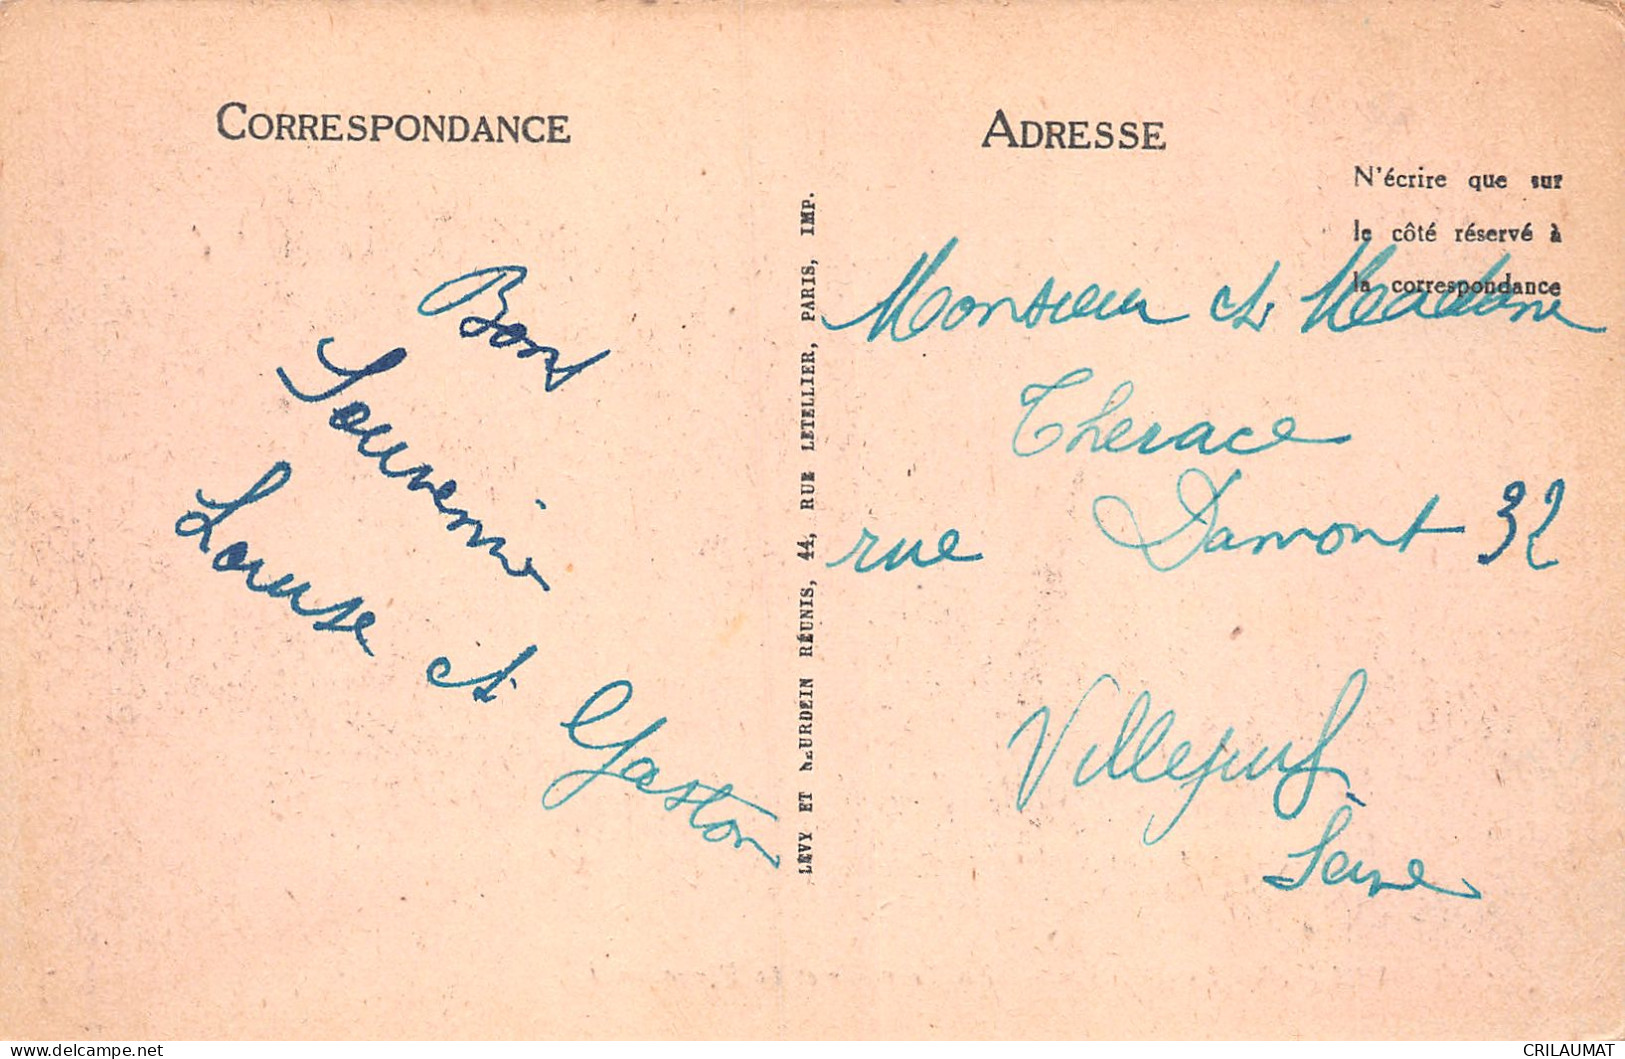 CORRESPONDANCE
Bons
Souvenir
Louise et Gaston
LÉVY ET NEURDEIN RÉUNIS, 44, RUE LETELLIER, PARIS, IMP.
ADRESSE
N'écrire que sur
le côté réservé à
la correspondance
Monsieur et Madame
Therace
rue Damont 32
Villejuif
Seine
delcampe.net
CRILAUMAT